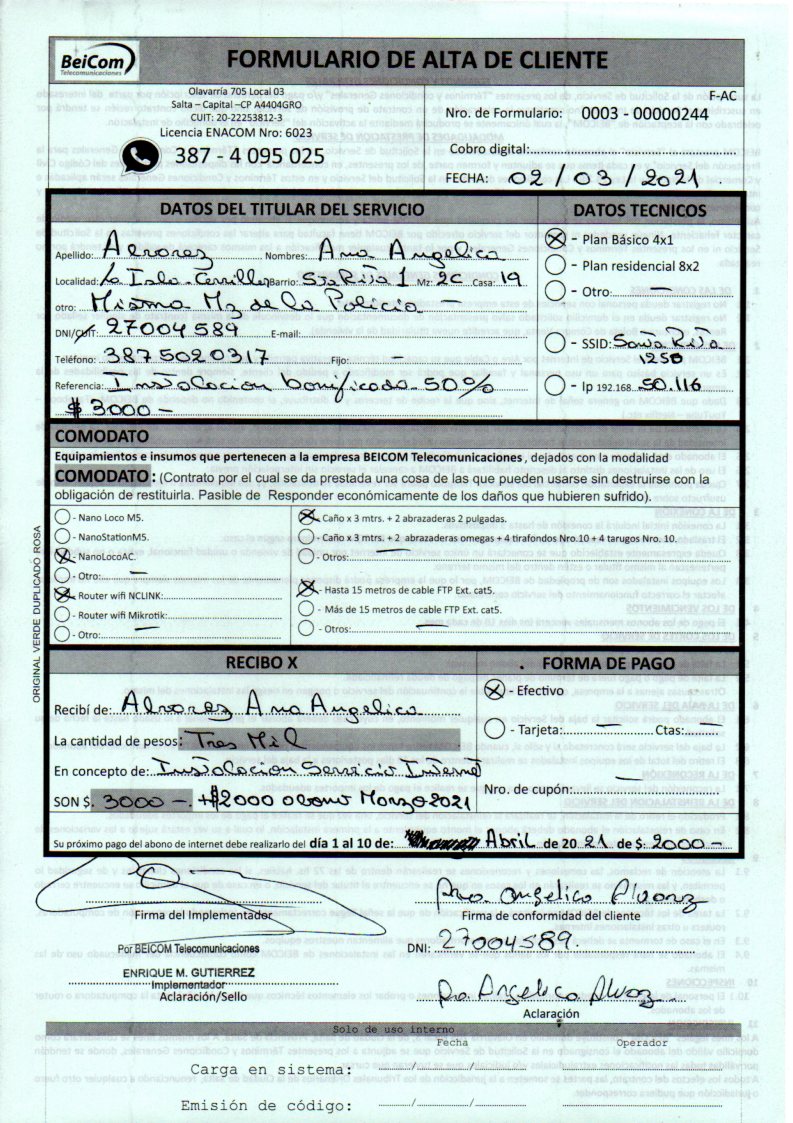 BeiCom
Telecomunicaciones
FORMULARIO DE ALTA DE CLIENTE
Olavarría 705 Local 03
Salta – Capital –CP A4404GRO
CUIT: 20-22253812-3
Licencia ENACOM Nro: 6023
387 - 4 095 025
F-AC
Nro. de Formulario: 0003 - 00000244
Cobro digital:
FECHA: 02 / 03 / 2021
DATOS DEL TITULAR DEL SERVICIO
Apellido: Alvarez Nombres: Ana Angelica
Localidad: La Isla - Cerrillos Barrio: Sta Rita 1 Mz: 2C Casa: 19
otro: Misma Mz de la Policia —
DNI/CUIT: 27004589 E-mail:
Teléfono: 3875020317 Fijo: —
Referencia: Instalacion bonificada 50%
$ 3000 —
DATOS TECNICOS
- Plan Básico 4x1
- Plan residencial 8x2
- Otro: —
- SSID: Santa Rita
1250
- Ip 192.168. 50.116
COMODATO
Equipamientos e insumos que pertenecen a la empresa BEICOM Telecomunicaciones, dejados con la modalidad
COMODATO: (Contrato por el cual se da prestada una cosa de las que pueden usarse sin destruirse con la
obligación de restituirla. Pasible de Responder económicamente de los daños que hubieren sufrido).
- Nano Loco M5.
- NanoStationM5.
- NanoLocoAC.
- Otro: —
- Router wifi NCLINK:
- Router wifi Mikrotik:
- Otro: —
- Caño x 3 mtrs. + 2 abrazaderas 2 pulgadas.
- Caño x 3 mtrs. + 2 abrazaderas omegas + 4 tirafondos Nro.10 + 4 tarugos Nro. 10.
- Otros: —
- Hasta 15 metros de cable FTP Ext. cat5.
- Más de 15 metros de cable FTP Ext. cat5.
- Otros: —
ORIGINAL VERDE DUPLICADO ROSA
RECIBO X
Recibí de: Alvarez Ana Angelica
La cantidad de pesos: Tres Mil
En concepto de: Instalacion Servicio Internet
SON $. 3000 —. +$2000 abono Marzo 2021
FORMA DE PAGO
- Efectivo
- Tarjeta: — Ctas: —
Nro. de cupón: —
Su próximo pago del abono de internet debe realizarlo del día 1 al 10 de: Abril de 20 21 de $: 2000 —
Firma del Implementador
Por BEICOM Telecomunicaciones
ENRIQUE M. GUTIERREZ
Implementador
Aclaración/Sello
Ana Angelica Alvarez
Firma de conformidad del cliente
DNI: 27004589.
Ana Angelica Alvarez
Aclaración
Solo de uso interno
Fecha Operador
Carga en sistema: / /
Emisión de código: / /